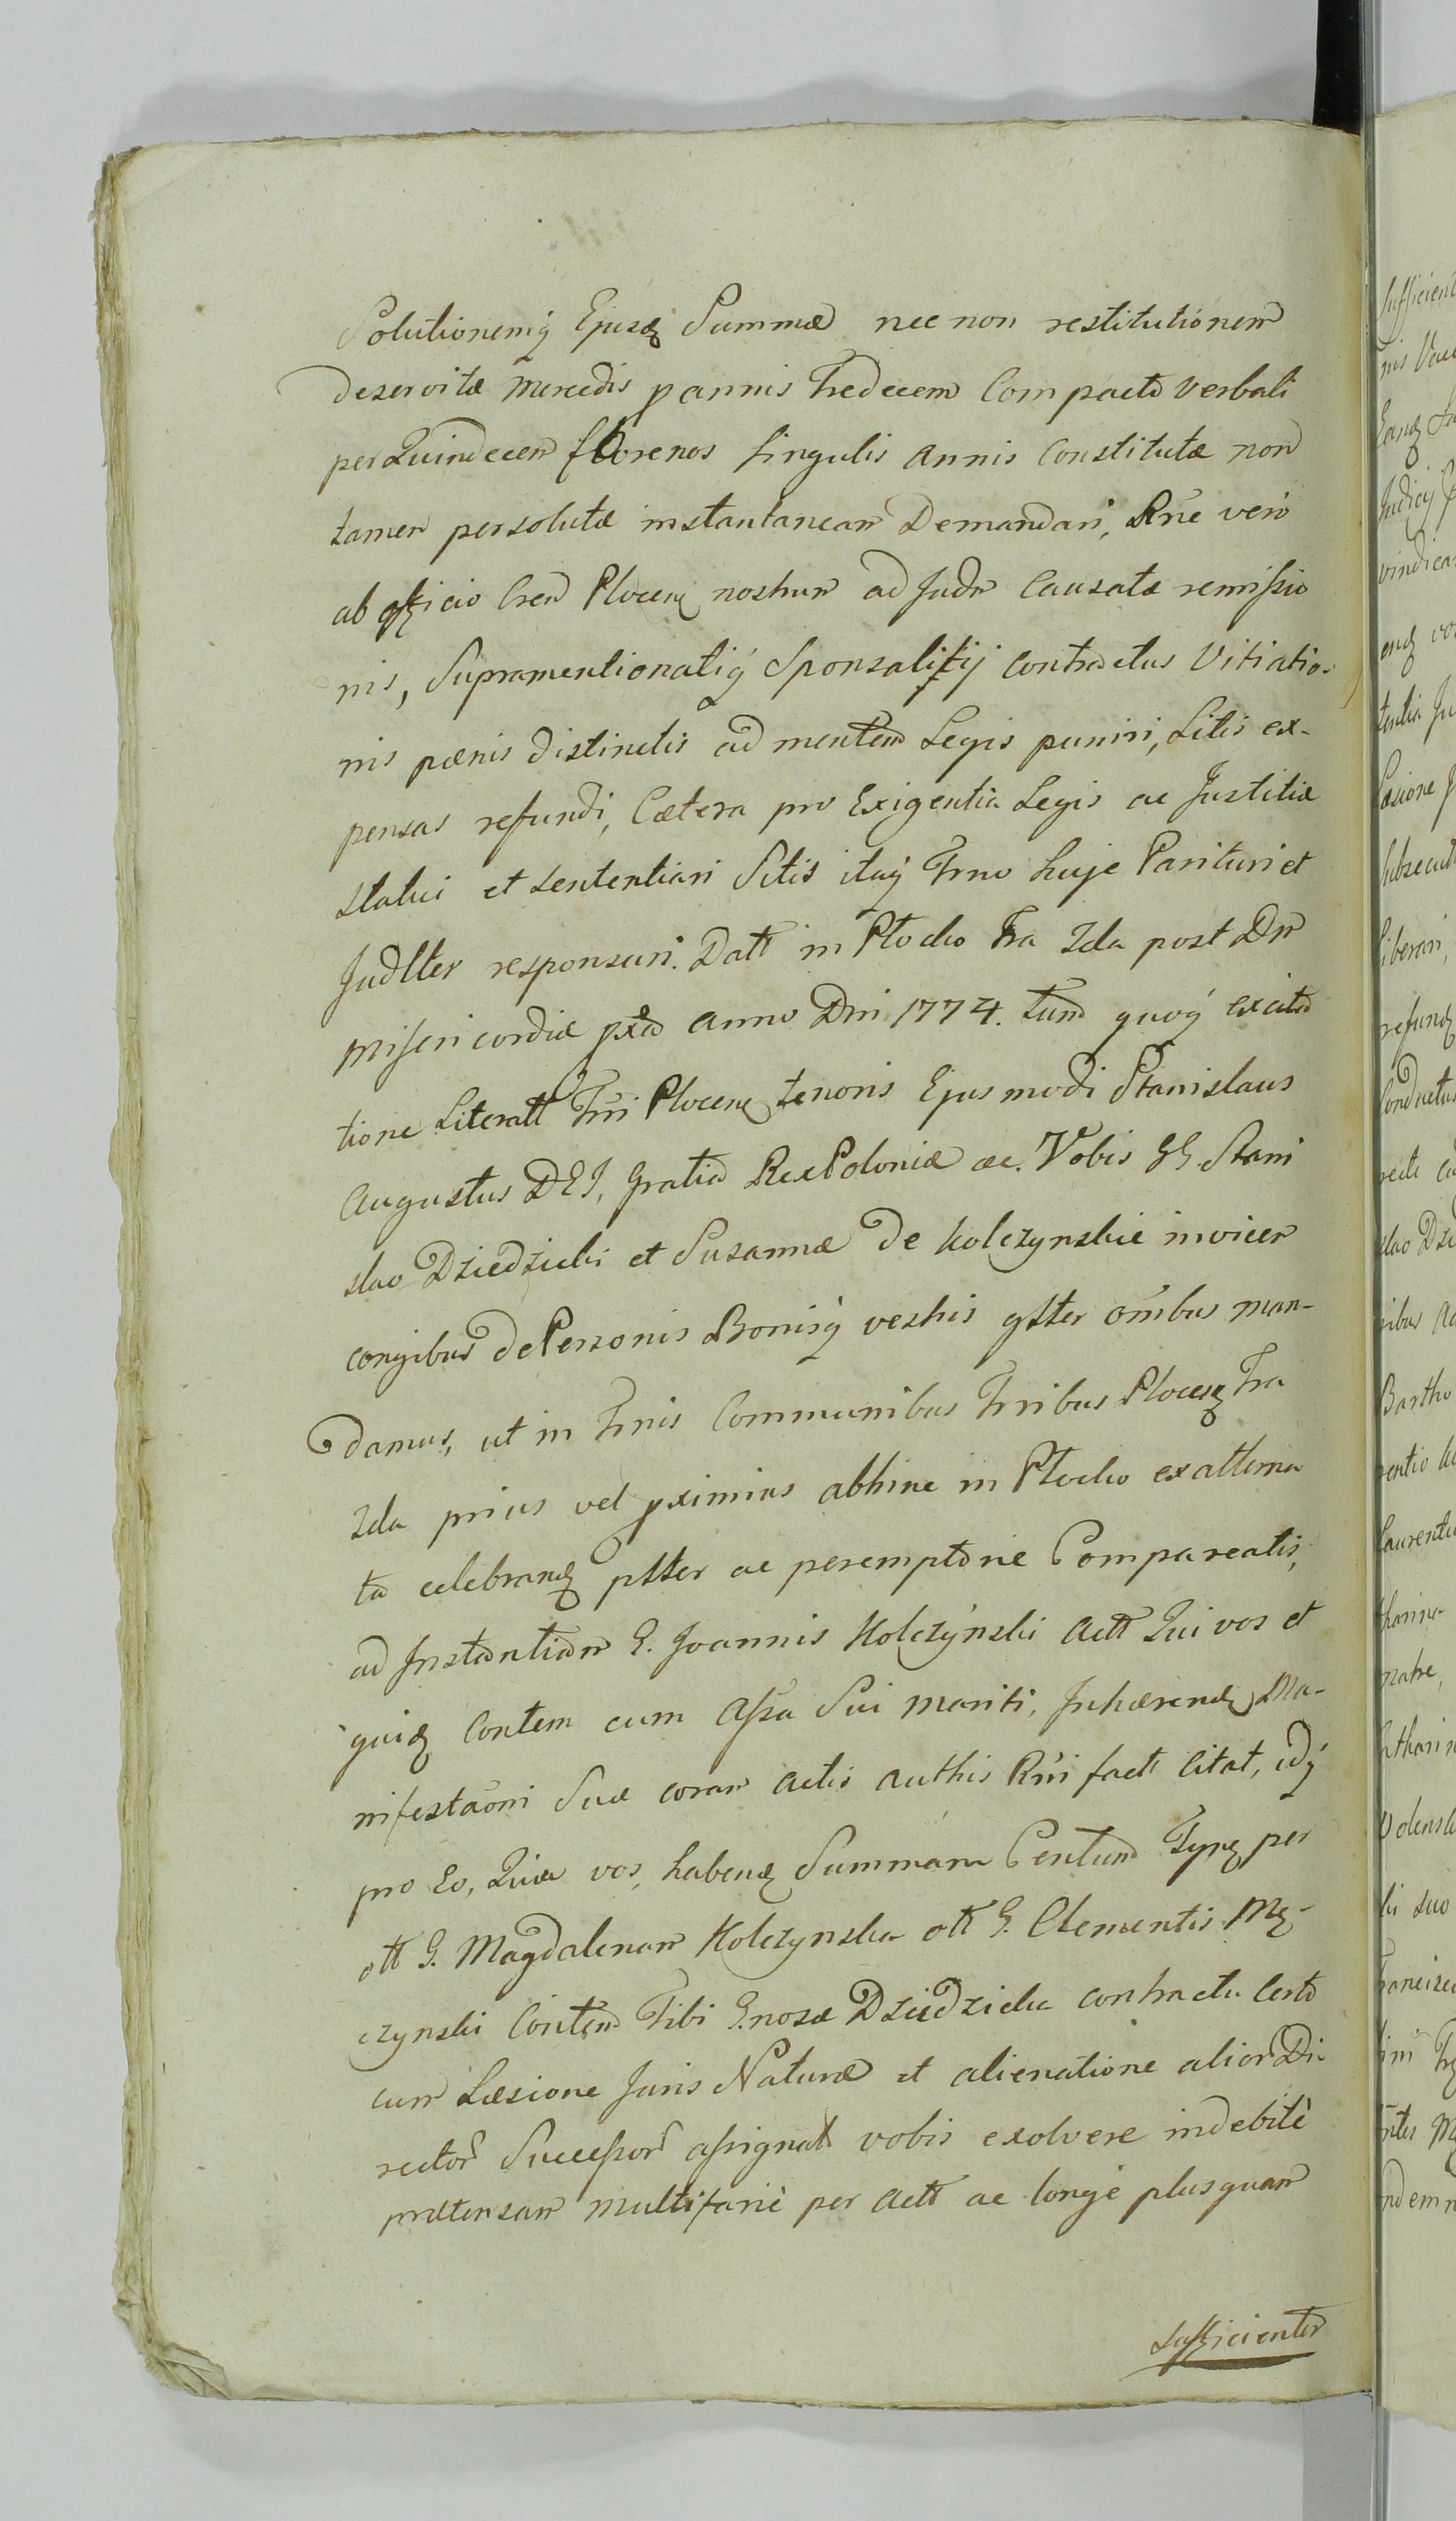 Solutionemq́ Ejusđ Summæ nec non restitutionem
deservitæ mercedis p annis Tredecem Compacto verbali
per Quindecem florenos singulis annis Constitutæ non
tamen persolutæ instantanean Demandari, Rñe verò
ab officio Cren Plocenȩ nostrum ad Judm Causatæ remissio
nis, Supramentionatiq́ Sponsalitij Contractus Vitiatio-
nis pænis distinctis ad mentem Legis puniri, Litis ex-
pensas refundi, Cætera pro Exigentia Legis ac Justitiæ
statui et sententiari Sitis itaq́ Trno huje Parituri et
Judlter responsuri. Datt in Plocko Fra 2da post Dm
misericordiæ pxa anno Dni 1774. tum quoq́ excita
tione Literatt Tri Plocenȩ tenoris Ejusmodi Stanislaus
Augustus DEI, Gratia Rex Poloniæ ac. Vobis GG. Stani
slao Dziedzicki et Susannæ de Kolczynskie invicem
conjgibus de Personis Bonisq́ vestris gtter om̃ibus man-
damus, ut in Trnis Communibus Trribus Plocenȩ Fra
2da prius vel pximius abhinc in Plocko ex alterna
ta celebranđ ptter ac peremptorie Compareatis,
ad Instantiam G. Joannis Kolczẏnski Actt Qui vos et
quiđ Contem cum Assa Sui mariti, Inhærenđ Ma-
nifestaõni Suæ coram actis authis Rñi fact Citat, idq́
pro Eo, Quia vos, habenđ Summam Centum Tynȩ per
ott G. Magdalenam Kolczynska ott G. Clementis Mȩ-
czynski Contem Tibi Gnosæ Dziedzicka contractu Certo
cum Læsione Juris Naturæ et alienatione alior Di-
rector Successor assignat vobis exolvere indebitè
prætensam multifariè per Actt ac longè plusquam
sufficienter